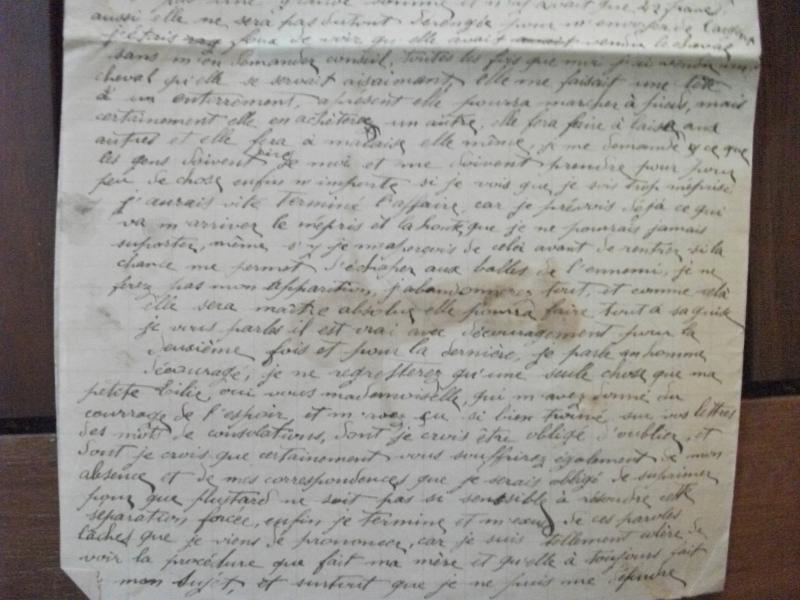 pas une grande somme
aussi elle ne sera pas surtout derengée pour m'envoyer de l'argent
j'étais fou de voir qu'elle avait vendu le cheval
sans m'en demander conseil, toutes les fois que moi j'ai vendu un
cheval qu'elle se servait aisaiment, elle me faisait une tête
à un enterrement, apresent elle pourra marcher à pieds, mais
certainement elle en achètera un autre, elle fera faire à laise aux
autres et elle fera à malaise elle même, je me demande ce que
les gens doivent dire je moi et me doivent prendre pour pour
peu de chose enfin n'importe si je vois que je suis trop méprisé
j'aurais vite terminé l'affaire, car je prévois déjà ce qui
va m'arriver le mépris et la honte que je ne pourrais jamais
suporter, même s'y je m'aperçois de celà avant de rentrer, si la
chance me permet d'échaper aux balles de l'ennemi, je ne
ferez pas mon apparition, j'abandonnerez tout, et comme celà
elle sera maître absolue elle pourra faire tout à sa guise
je vous parles il est vrai avec découragement pour la
deuxième fois et pour la dernière, je parle en homme
découragé, je ne regretterez qu'une seule chose que ma
petite Lilie, oui vous mademoiselle, qui m'avez donné du
courrage de l'espoir, et m'avez su si bien trouvé sur vos lettres
des mots de consolations, dont je crois être obligé d'oublier, et
dont je crois que certainement vous souffrirez également de mon
absence et de mes correspondences que je serais obligé de suprimer
pour que plustard ne soit pas si sensible à résoudre cette
séparation forcée, enfin je termine et m'excuse de ces paroles
lâches que je viens de prononcer, car je suis tellement colère de
voir la procédure que fait ma mère et qu'elle à toujours fait
mon sujet, et surtout que je ne puis me défendre